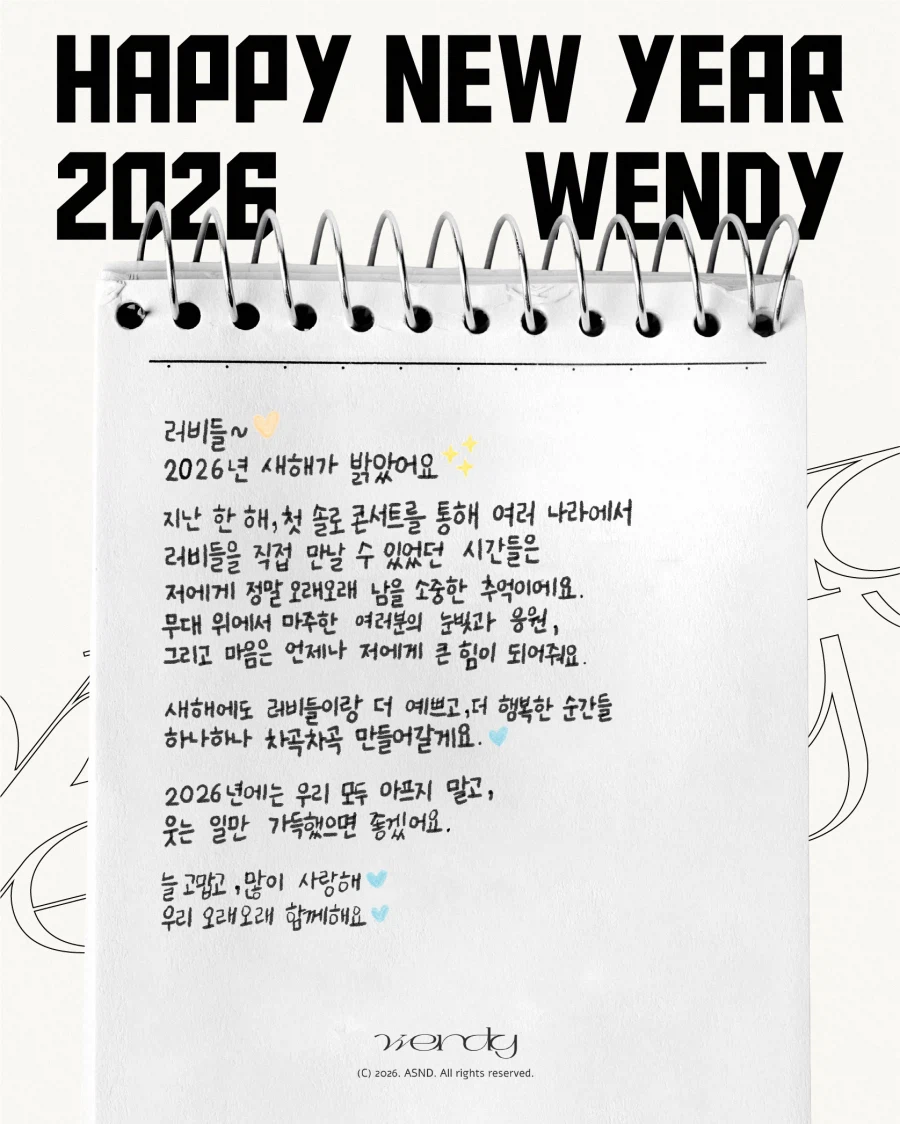 HAPPY NEW YEAR
2026 WENDY
러비들~
2026년 새해가 밝았어요
지난 한 해, 첫 솔로 콘서트를 통해 여러 나라에서
러비들을 직접 만날 수 있었던 시간들은
저에게 정말 오래오래 남을 소중한 추억이에요.
무대 위에서 마주한 여러분의 눈빛과 응원,
그리고 마음은 언제나 저에게 큰 힘이 되어줘요.
새해에도 러비들이랑 더 예쁘고, 더 행복한 순간들
하나하나 차곡차곡 만들어갈게요.
2026년에는 우리 모두 아프지 말고,
웃는 일만 가득했으면 좋겠어요.
늘 고맙고, 많이 사랑해
우리 오래오래 함께해요
wendy
(C) 2026. ASND. All rights reserved.